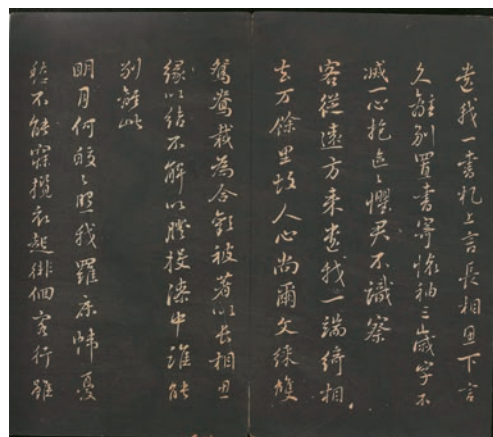 遺我一書札上言長相思下言
久離別置書寄懷袖三歲字不
滅一心抱區〻懼君不識察
客從遠方来遺我一端綺相
去万餘里故人心尚爾文綵雙
鴛鴦裁為合歡被著以长相思
緣以結不解以膠投漆中誰能
別離此
明月何皎〻照我羅床幃憂
愁不能寐攬衣起徘徊客行雖